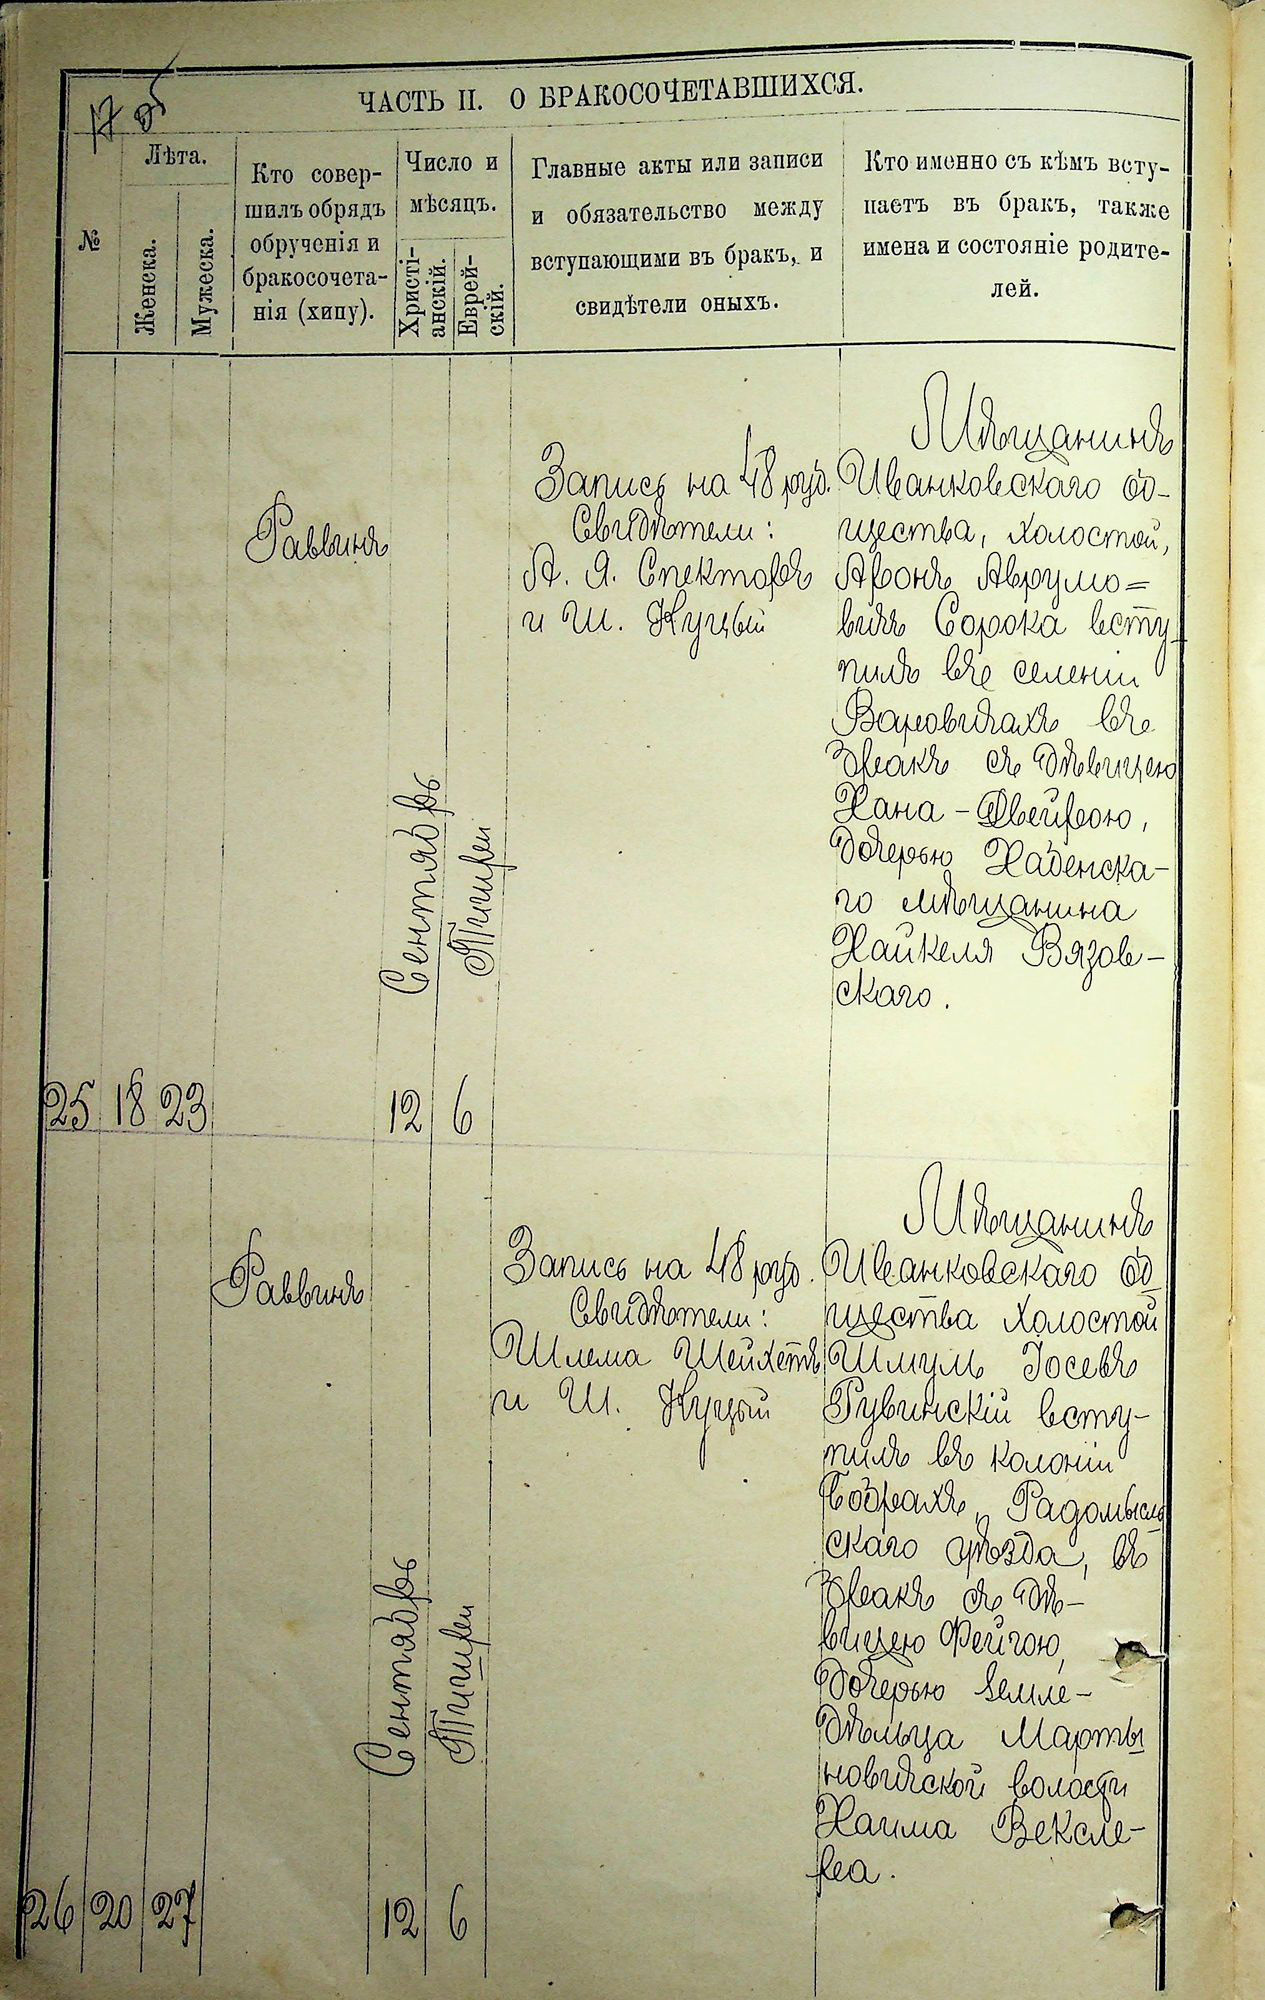 17 об
ЧАСТЬ II. О БРАКОСОЧЕТАВШИХСЯ.
№
Лѣта.
Женска.
Мужеска.
Кто совер-
шилъ обрядъ
обрученія и
бракосочета-
нія (хипу).
Число и
мѣсяцъ.
Христі-
анскій.
Еврей-
скій.
Главные акты или записи
и обязательство между
вступающими въ бракъ, и
свидѣтели оныхъ.
Кто именно съ кѣмъ всту-
паетъ въ бракъ, также
имена и состояніе родите-
лей.
25
18
23
Раввинъ
Сентябрь
12
Тишрей
6
Запись на 48 руб.
Свидѣтели:
А. Я. Спекторъ
и Ш. Куцый
Мѣщанинъ
Иванковскаго об-
щества, холостой,
Аронъ Аврумо=
вичъ Сорока всту-
пилъ въ селеніи
Варовичахъ въ
бракъ съ дѣвицею
Хана-Двейрою,
дочерью Хабенска-
го мѣщанина
Хайкеля Вязов-
скаго.
26
20
27
Раввинъ
Сентябрь
12
Тишрей
6
Запись на 48 руб.
Свидѣтели:
Шлема Шейхетъ
и Ш. Куцый
Мѣщанинъ
Иванковскаго об-
щества холостой
Шмуль Іосевъ
Рувинскій всту-
пилъ въ колоніи
Бобрахъ, Радомысль
скаго уѣзда, въ
бракъ съ дѣ-
вицею Фейгою,
дочерью земле-
дѣльца Марты
новичской волости
Хаима Вексле-
ра.